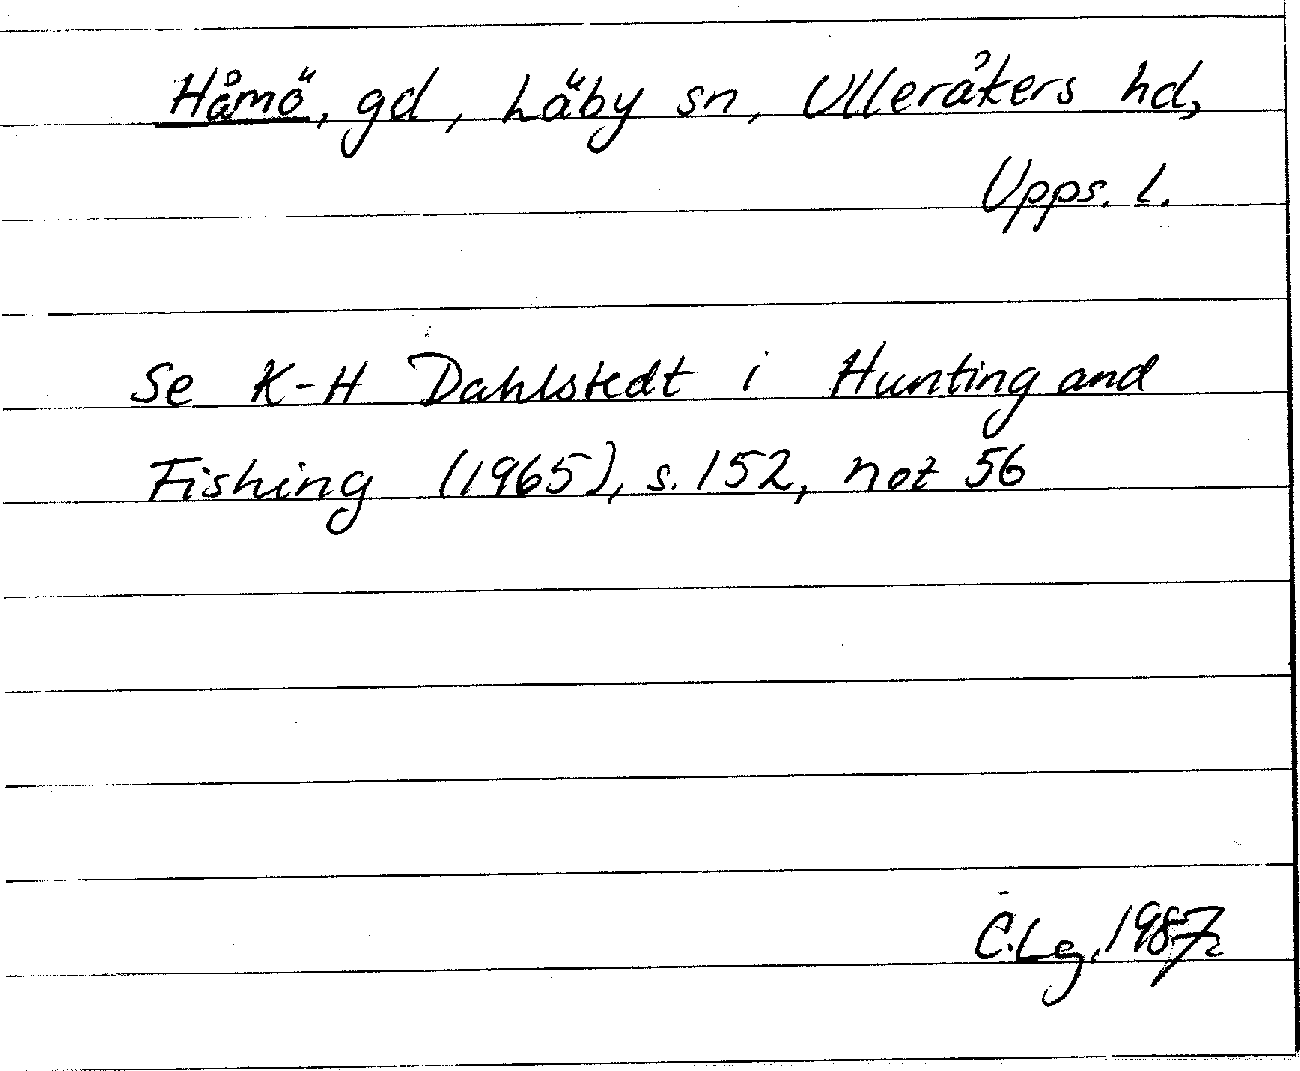 Håmö, gd, Läby sn, Ulleråkers hd,
Upps. l.
Se K-H Dahlstedt i Hunting and
Fishing (1965), s. 152, not 56
C. Lg, 1987